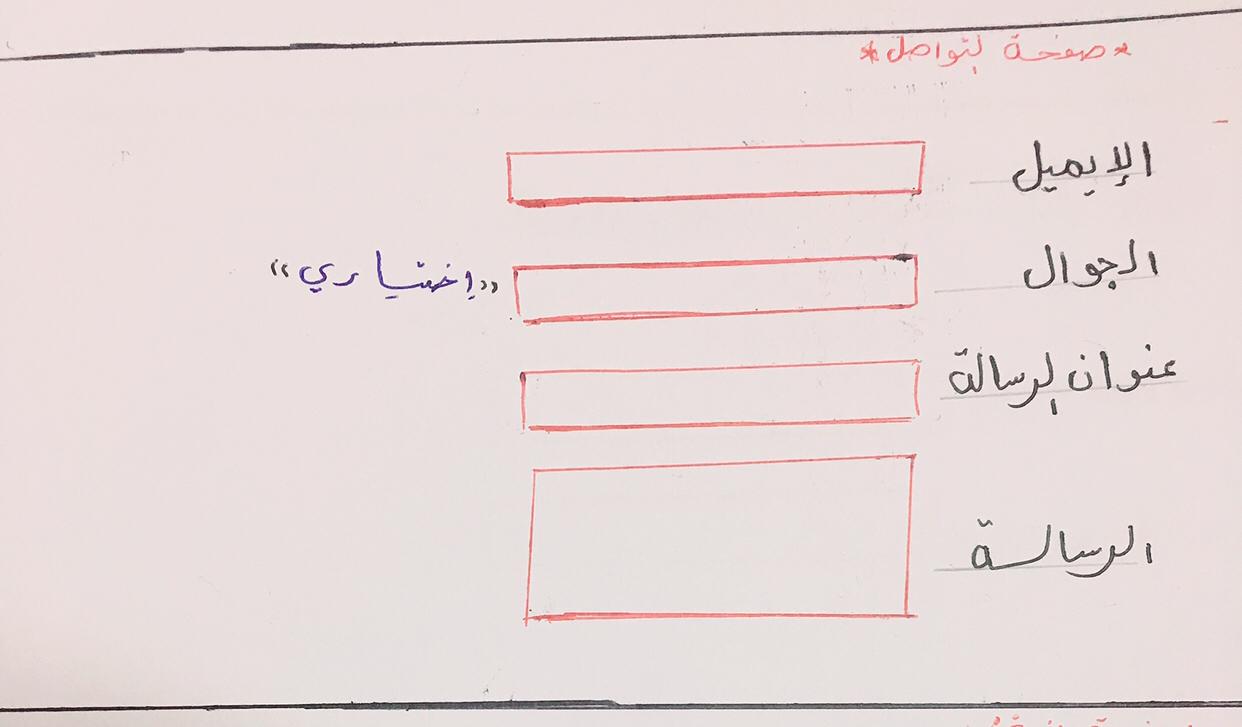 *صفحة لتواصل*
الإيميل
الجوال «إختياري»
عنوان لرسالة
الرسالة